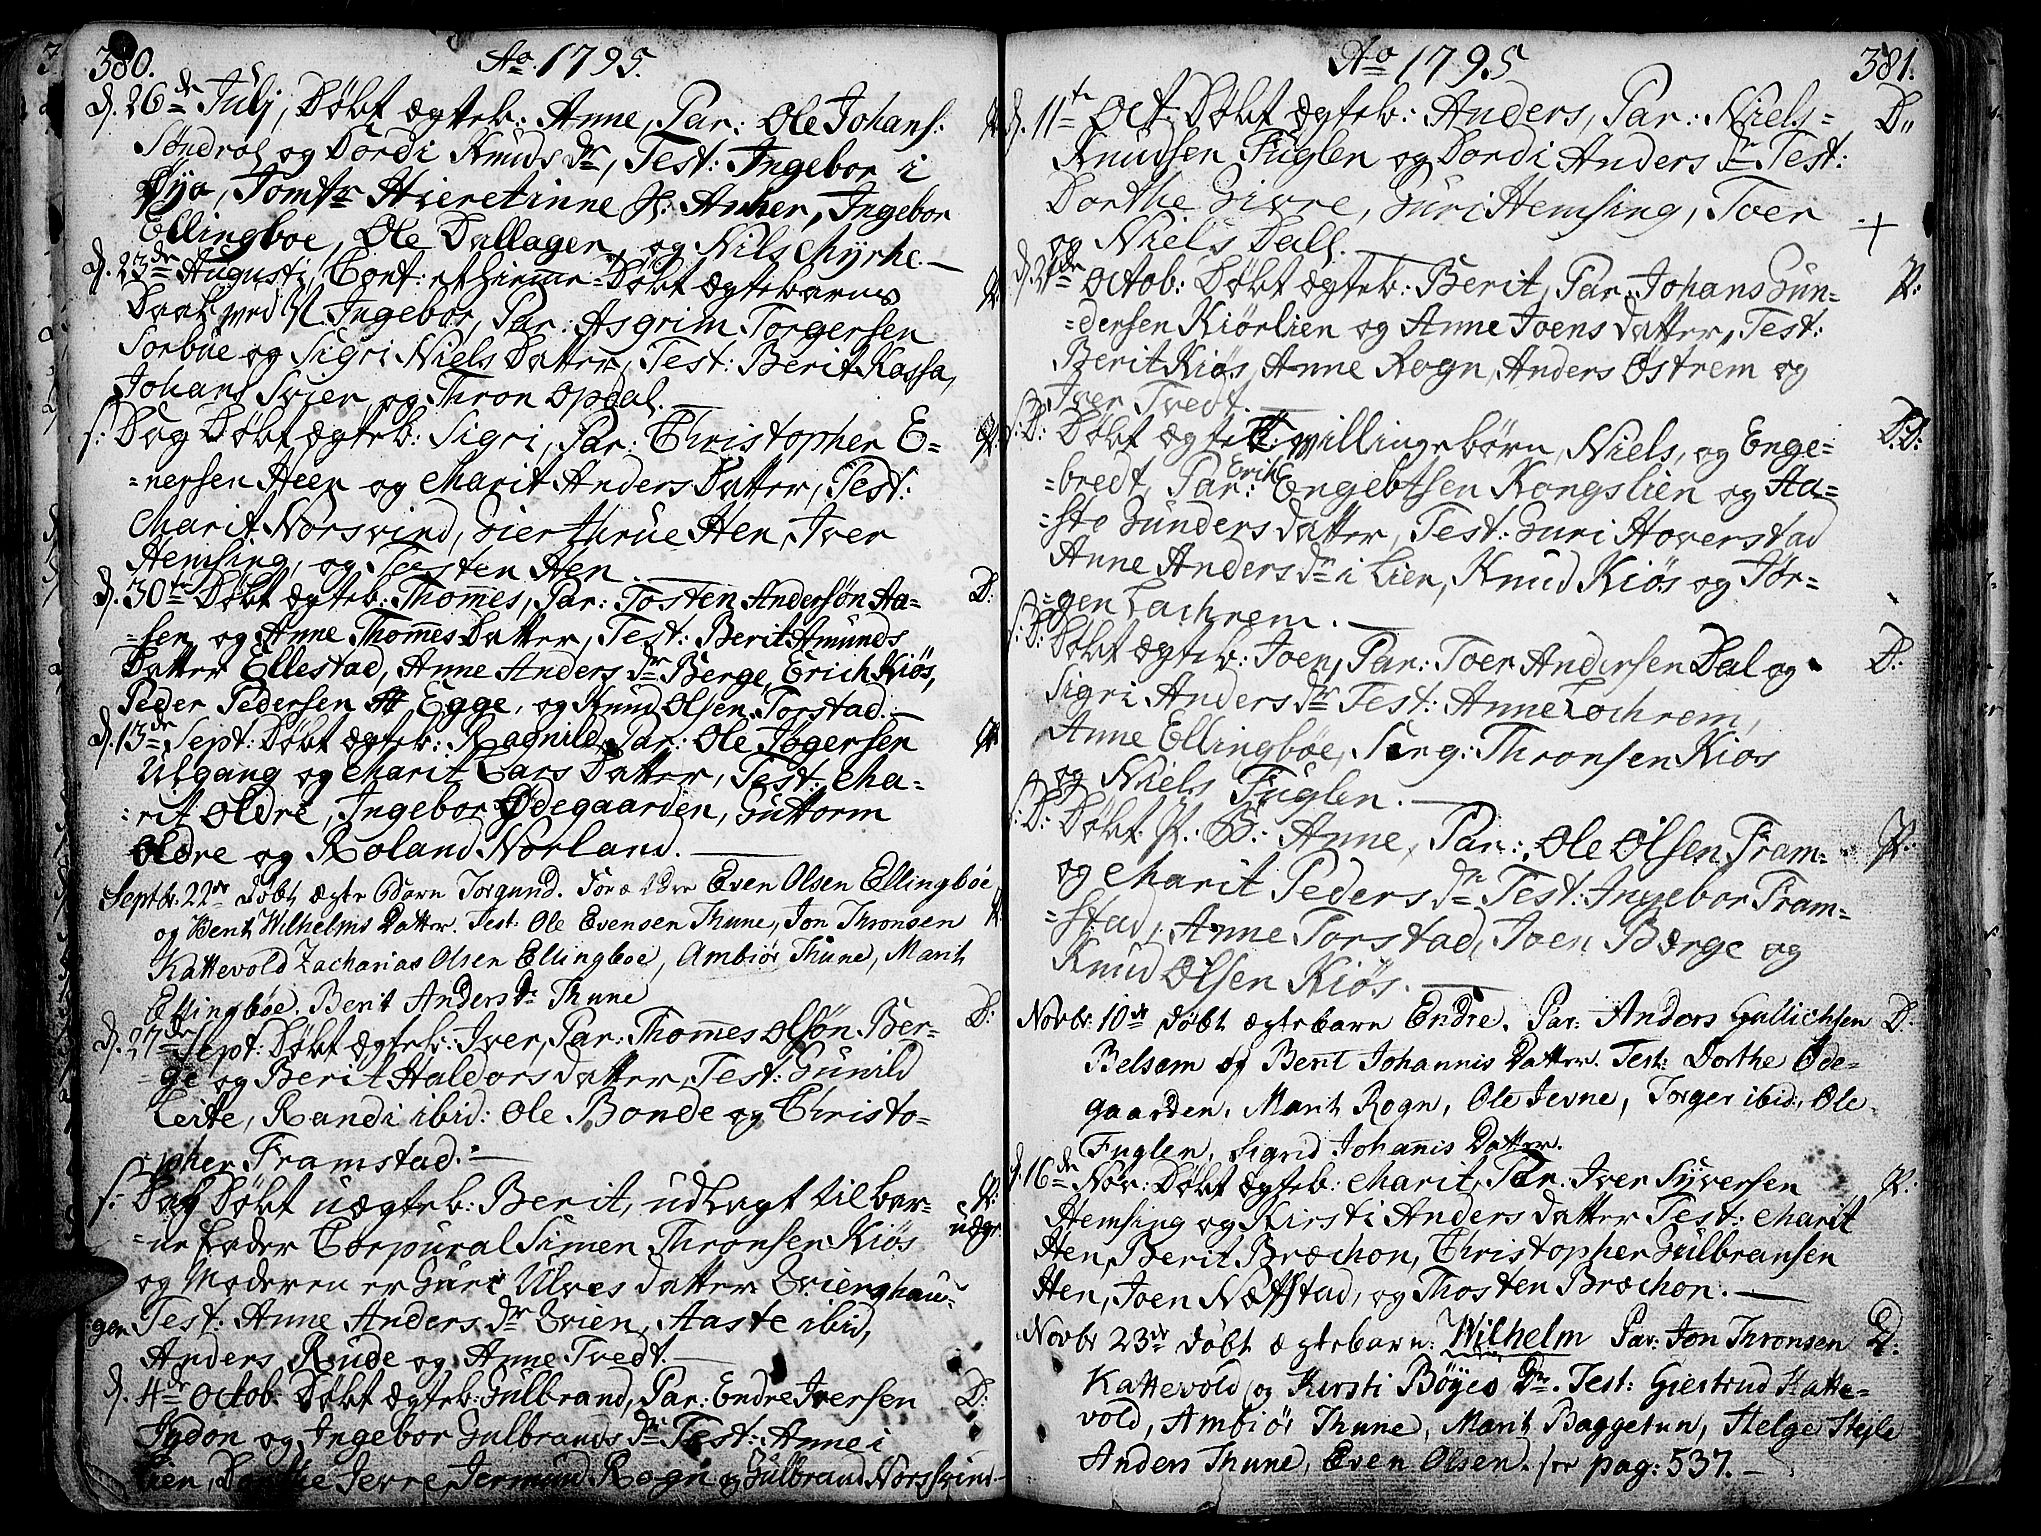 380.
Ao. 1795.
d. 26de Julj, Døbt ægteb: Anne, Par: Ole Johans:
Søndrol og Dordi Knuds dr, Test: Ingebor i
Øye, Jomfr Hieretinne H: Anker, Ingebor
Ellingboe, Ole Dallager, og Nils Myrhe. —
d. 23de Augustj, Conf: et hiemme-Døbt Ægtebarns
Daab ved N. Ingebor, Par: Asgrim Torgersen
Sorbüe og Sigri Niels Datter, Test: Berit Kassa,
Johans Svier og Thron Opdal. —
s: Dag Døbt ægteb: Sigri, Par: Christopher E-
-nersen Heen og Marit Anders Datter, Test:
Marit Norsvind, Gierthrue Hen, Iver
Hemsing, og Testen Hen. —
d. 30te Døbt ægteb: Thomes, Par: Tosten Andersøn Aa-
-sen og Anne Thomes Datter, Test: Berit Amunds
Datter Ellestad, Anne Anders dr Berge, Erich Kiös,
Peder Pedersen Egge, og Knud Olsen Torstad. —
d. 13de Sept: Døbt ægteb: Ragnild, Par: Ole Togersen
Ulgang og Marit Lars Datter, Test: Ma-
-rit Oldre, Ingebor Ødegaarden, Guttorm
Oldre og Roland Norland. —
Septbr. 22de Døbt ægte Barn Torgund. Forældre Even Olsen Ellingbøe
og Berit Wilhelms Datter. Test: Ole Evensen Thune, Jon Thronsen
Kattevold Zacharias Olsen Ellingboe, Ambiør Thune, Marit
Ellingbøe. Berit Anders Dr Thune
d. 27de Sept: Døbt ægteb: Iver, Par: Thomes Olsøn Ber-
-ge og Berit Haldors datter, Test: Gunild
Leite, Randi ibid: Ole Bonde og Christo-
-pher Framstad. —
s: Dag Døbt uægteb: Berit, udlagt til bar-
-ne fader Corpural Simen Thronsen Kiös
og Moderen er Guri Ulves datter Qvienghau-
gen Test: Anne Anders dr Qvien, Aaste ibid,
Anders Rude og Anne Tvedt. —
d. 4de Octob: Døbt ægteb: Gulbrand, Par: Endre Iversen
Jydon og Ingebor Gulbrands dr Test: Anne i
Lien, Dorthe Jevre Jermund Rogn og Gulbrand Norssvind —
P.
P.
P.
D:
P.
P.
D:
P:
uægt.
D:
Ao 1795
381.
d. 11te Oct: Døbt ægteb: Anders, Par: Niels-
Knudsen Fuglen og Dordi Anders dr Test:
Dorthe Givre, Guri Hemsing, Toer
og Niels Dall. —
d. 21de Octob: Døbt ægteb: Berit, Par: Johans Gun-
-dersen Kiörlien og Anne Joens datter, Test:
Berit Kiös, Anne Rogn, Anders Østrem og
Iver Tvedt. —
s: D: Døbt ægte Tvillingebørn, Niels, og Enge-
-bredt, Par: Erik Engebtsen Kongslien og Aa-
-ste Gunders datter, Test: Guri Hoverstad
Anne Anders dr i Lien, Knud Kiös og Jör-
-gen Lachrem. —
s: D: Døbt ægteb: Joen, Par: Toer Andersen Dal og
Sigri Anders dr Test: Anne Lochrem,
Anne Ellingbøe, Serg: Thronsen Kiös
og Niels Fuglen. —
s: D: Døbt P: B: Anne, Par: Ole Olsen Fram-
og Marit Peders dr Test: Ingebor Fram-
-stad, Anne Torstad, Joen Berge og
Knud Olsen Kiös. —
Novbr: 10de Døbt ægtebarn Endre. Par: Anders Gullichsen
Belsem og Berit Johannis Datter. Test: Dorthe Øde-
gaarden, Marit Rogn, Ole Jevne, Torger ibid: Ole
Fuglen, Sigrid Johanis Datter.
d. 16de Nov: Døbt ægteb: Marit, Par: Iver Syversen
Hemsing og Kirsti Anders datter Test: Marit
Hen, Berit Bræchon, Christopher Gulbransen
Hen, Joen Næfstad, og Thosten Bræchon. —
Novbr 23de Døbt ægtebarn: Wilhelm Par: Jon Thronsen
Kattevold og Kirsti Böyes Dr. Test: Giertrud Katte-
vold, Ambiør Thune, Marit Baggetun, Helge Stejle
Anders Thune, Even Olsen. see pag: 537. —
D.,
+
P:
D.D:
D:
P:
D:
P:
D: